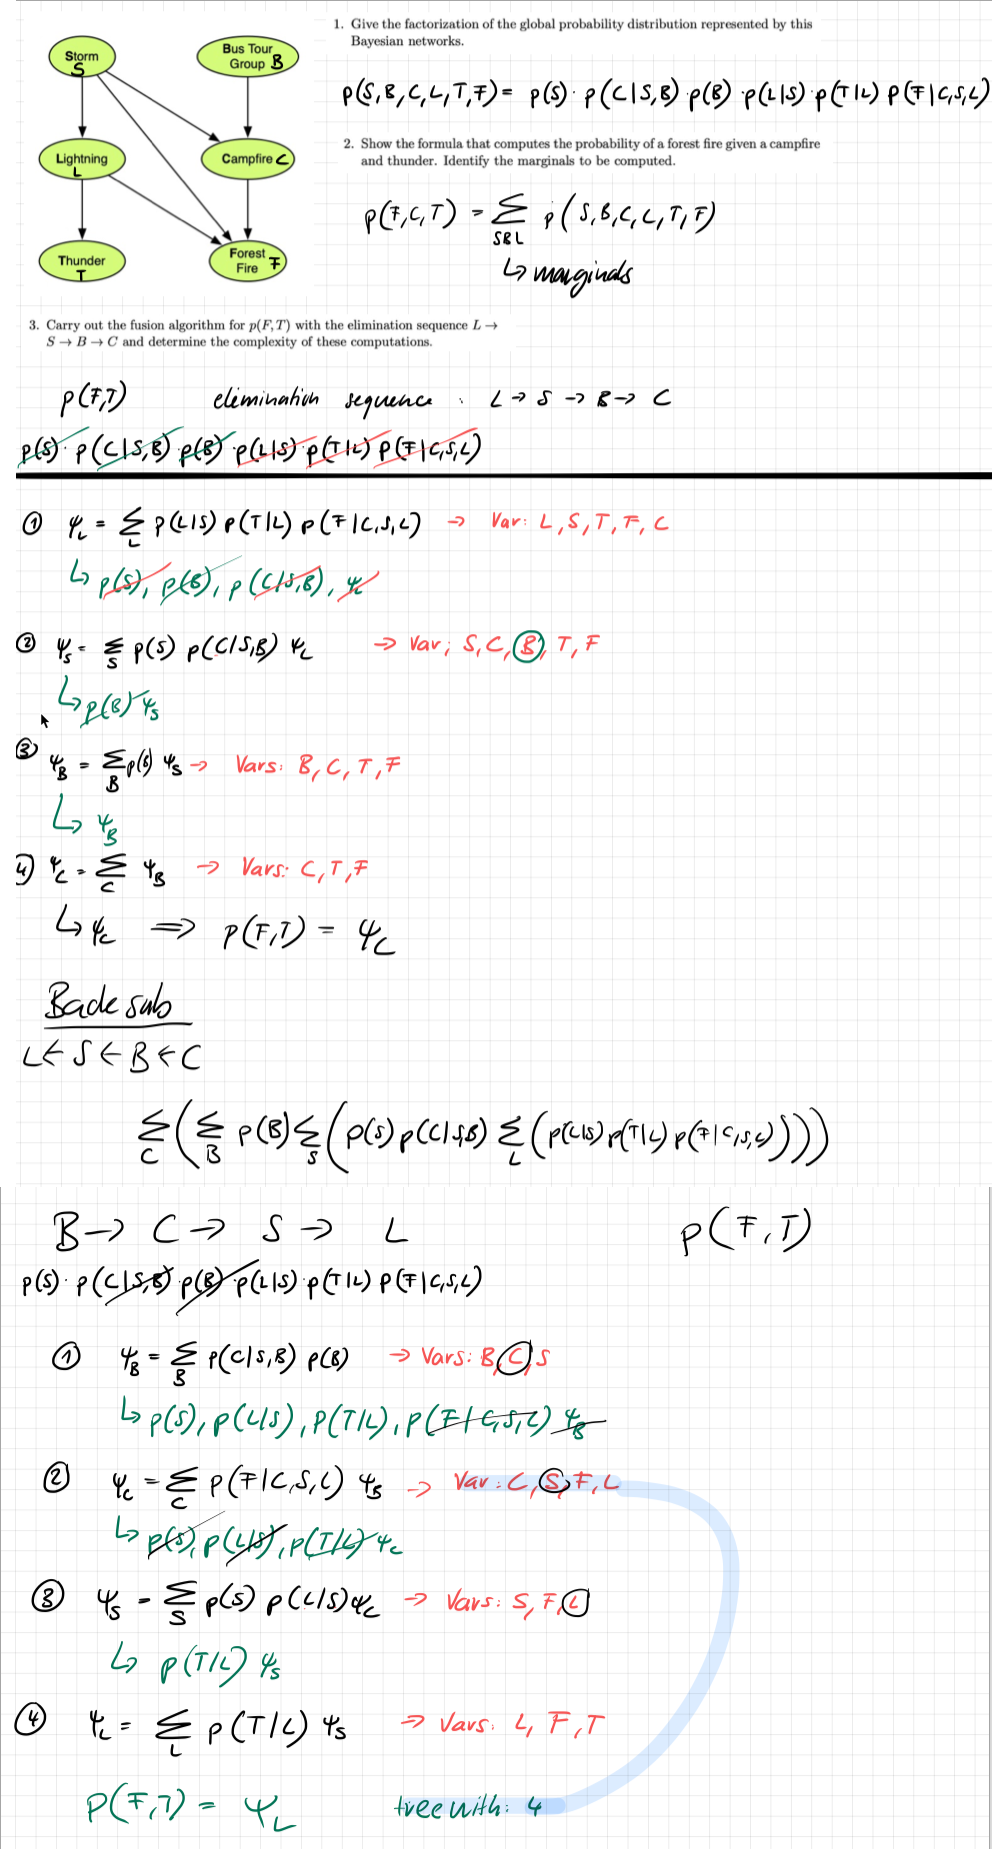 Storm
S
Bus Tour
Group B
Lightning
L
Campfire C
Thunder
T
Forest
Fire F
1. Give the factorization of the global probability distribution represented by this
Bayesian networks.
p(S,B,C,L,T,F) = p(S) · p(C|S,B) · p(B) · p(L|S) · p(T|L) p(F|C,S,L)
2. Show the formula that computes the probability of a forest fire given a campfire
and thunder. Identify the marginals to be computed.
p(F,C,T) = Σ p(S,B,C,L,T,F)
SBL
↳ marginals
3. Carry out the fusion algorithm for p(F,T) with the elimination sequence L →
S → B → C and determine the complexity of these computations.
p(F,T) elimination sequence : L → S → B → C
p(S) · p(C|S,B) p(B) · p(L|S) · p(T|L) p(F|C,S,L)
① Ψ_L = Σ_L p(L|S) p(T|L) p(F|C,S,L) → Var: L,S,T,F,C
↳ p(S), p(B), p(C|S,B), Ψ_L
② Ψ_S = Σ_S p(S) p(C|S,B) Ψ_L → Var; S,C,B,T,F
↳ p(B) Ψ_S
③ Ψ_B = Σ_B p(B) Ψ_S → Vars: B,C,T,F
↳ Ψ_B
4) Ψ_C = Σ_C Ψ_B → Vars: C,T,F
↳ Ψ_C ⇒ p(F,T) = Ψ_C
Back sub
L ← S ← B ← C
Σ_C (Σ_B p(B) Σ_S (p(S) p(C|S,B) Σ_L (p(L|S) p(T|L) p(F|C,S,L))))
B → C → S → L p(F,T)
p(S) · p(C|S,B) p(B) · p(L|S) · p(T|L) p(F|C,S,L)
① Ψ_B = Σ_B p(C|S,B) p(B) → Vars: B,C,S
↳ p(S), p(L|S), p(T|L), p(F|C,S,L) Ψ_B
② Ψ_C = Σ_C p(F|C,S,L) Ψ_B → Var: C,S,F,L
↳ p(S), p(L|S), p(T|L) Ψ_C
③ Ψ_S = Σ_S p(S) p(L|S) Ψ_C → Vars: S,F,L
↳ p(T|L) Ψ_S
④ Ψ_L = Σ_L p(T|L) Ψ_S → Vars: L,F,T
P(F,T) = Ψ_L treewith: 4